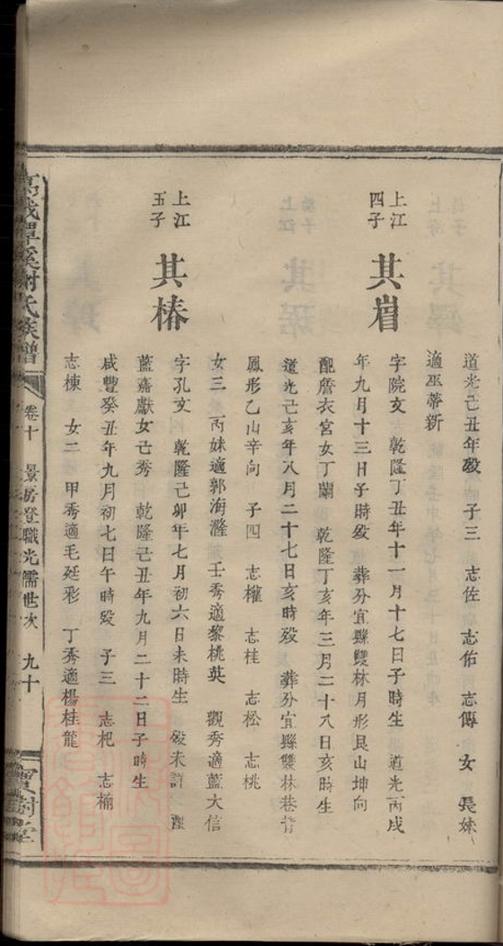 道光己丑年歿 子三 志佐 志佑 志傳 女 長妹
適巫蒂新
上江
四子
其㫺
字院文 乾隆丁丑年十一月十七日子時生 道光丙戌
年九月十三日子時歿 葬分宜縣雙林月形艮山坤向
配詹衣宮女丁蘭 乾隆丁亥年三月二十八日亥時生
道光己亥年八月二十七日亥時歿 葬分宜縣雙林巷背
鳳形乙山辛向 子四 志權 志桂 志松 志桃
女三 丙妹適郭海 壬秀適黎桃英 觀秀適藍大信
上江
五子
其椿
字孔文 乾隆己卯年七月初六日未時生 歿未詳 配
藍嘉獻女己秀 乾隆己丑年九月二十二日子時生
咸豐癸丑年九月初七日午時歿 子三 志杞 志楠
志棟 女二 甲秀適毛延彩 丁秀適楊桂龍
萬載潭溪謝氏族譜
卷十 景房登職光儒世次 九十
寶樹堂